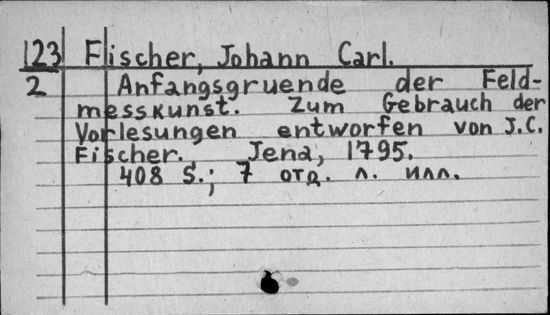 123 Fischer, Johann Carl.
2 Anfangsgruende der Feld-
messkunst. Zum Gebrauch der
Vorlesungen entworfen von J.C.
Fischer. Jena, 1795.
408 S.; 7 отд. л. илл.